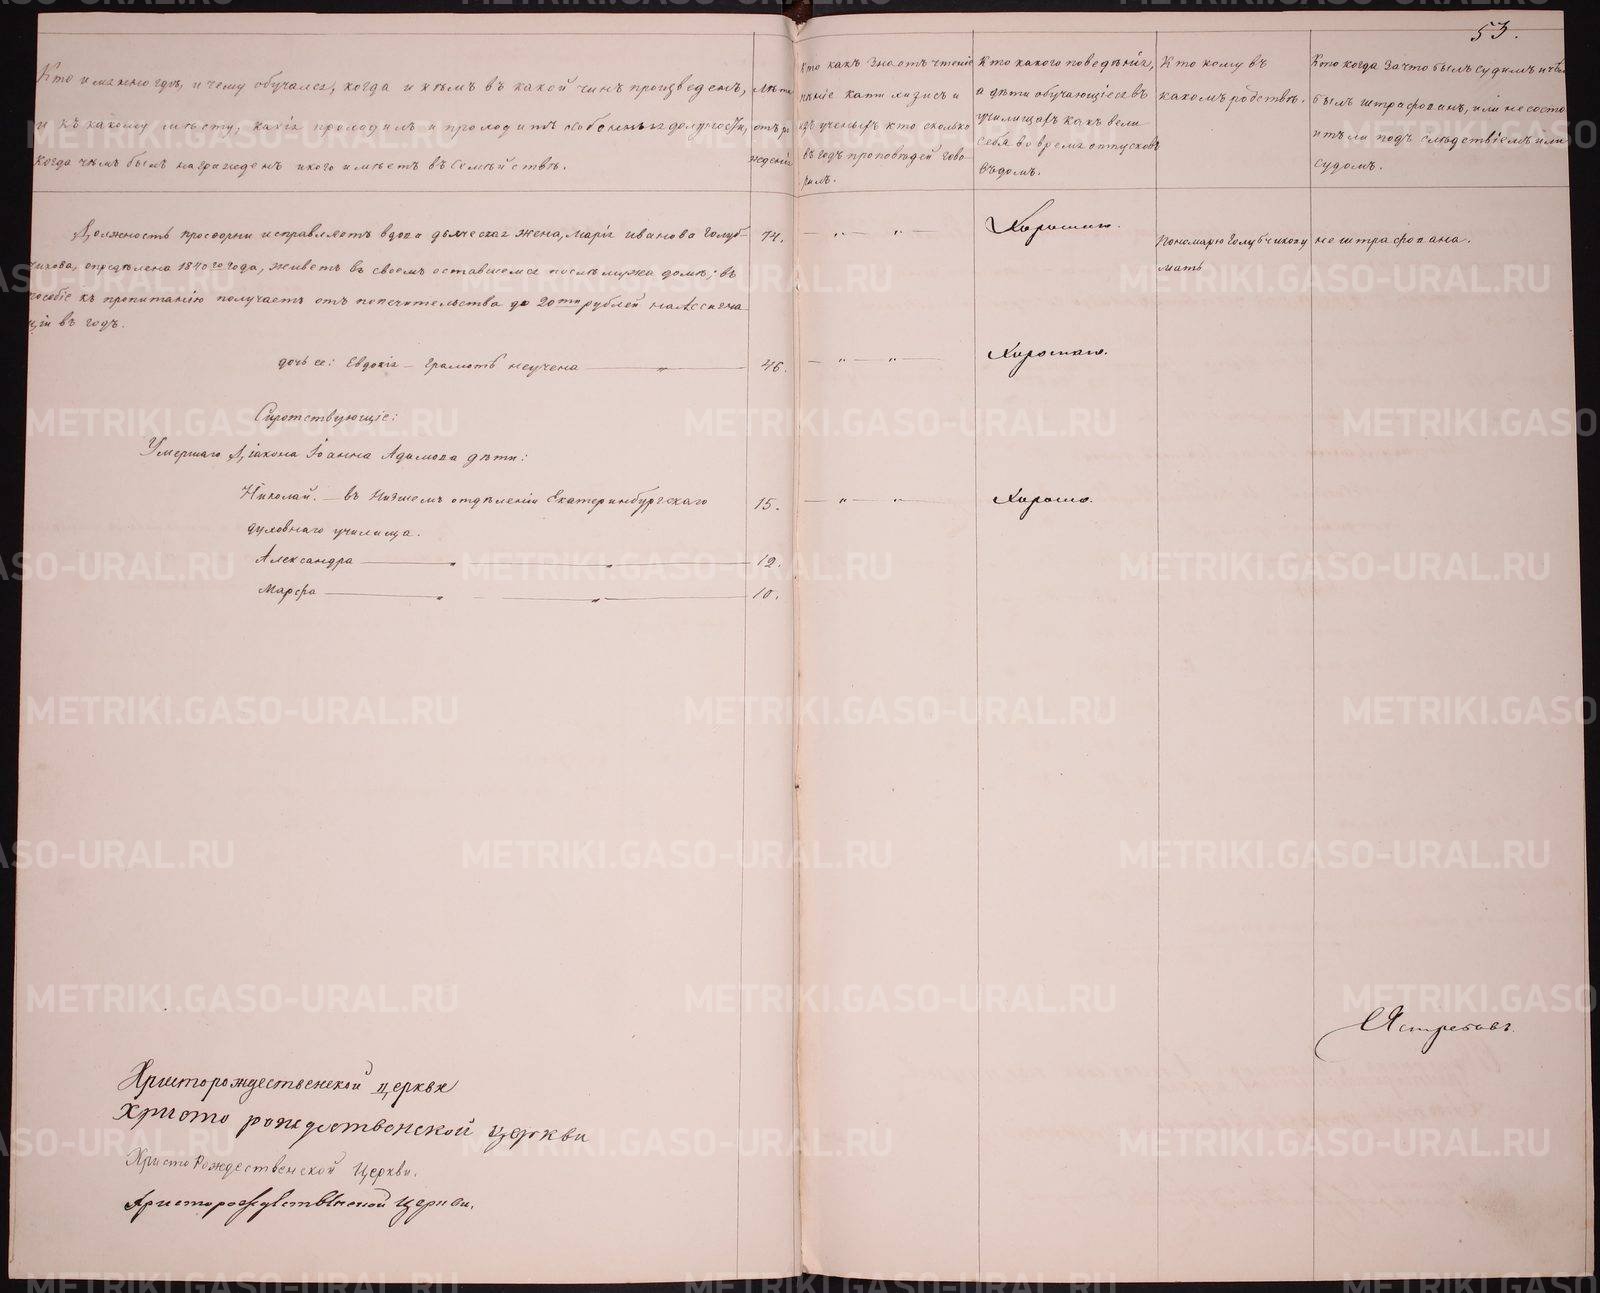 53.
Кто именно гдѣ, и чему обучался, когда и кѣмъ въ какой чинъ произведенъ,
и къ какому мѣсту, какія проходилъ и проходитъ особенныя должности,
когда чѣмъ былъ награжденъ и кого имѣетъ въ Семѣйствѣ.
Лѣта
отъ ро
жденія
Кто какъ знаетъ чтеніе
пѣніе катихизисъ и
изъ ученыхъ кто сколько
въ годъ проповѣдей гово
рилъ.
Кто какого поведѣнія,
а дѣти обучающіеся въ
училищахъ какъ вели
себя во время отпусковъ
въ домъ.
Кто кому въ
какомъ родствѣ.
Кто когда за что былъ судимъ и чѣмъ
былъ штрафованъ, или не состо
итъ ли подъ слѣдствіемъ или
судомъ.
Должность просфорни исправляетъ вдова дьяческая жена, Марія Иванова Голуб-
чикова, опредѣлена 1840го года, живетъ въ своемъ оставшемся послѣ мужа домѣ; въ
пособіе къ пропитанію получаетъ отъ попечительства до 20ти рублей на Ассигна
ціи въ годъ.
74. — „ — „ —
Хорошаго.
Пономарю Голубчикову
мать
не штрафована.
дочь ее: Евдокія — Грамотѣ неучена — „ — 46. — „ — „ — Хорошаго.
Сиротствующіе:
Умершаго Діакона Іоанна Адамова дѣти:
Николай. — въ Низшемъ отдѣленіи Екатеринбургскаго 15. — „ — „ — Хорошо.
духовнаго училища.
Александра — „ — „ — 12.
Марфа — „ — „ — 10.
Ястребовъ.
Христорождественской церкви
Христо рождественской церкви
Христо Рождественской Церкви.
Христорождественской Церкви.
METRIKI.GASO-URAL.RU